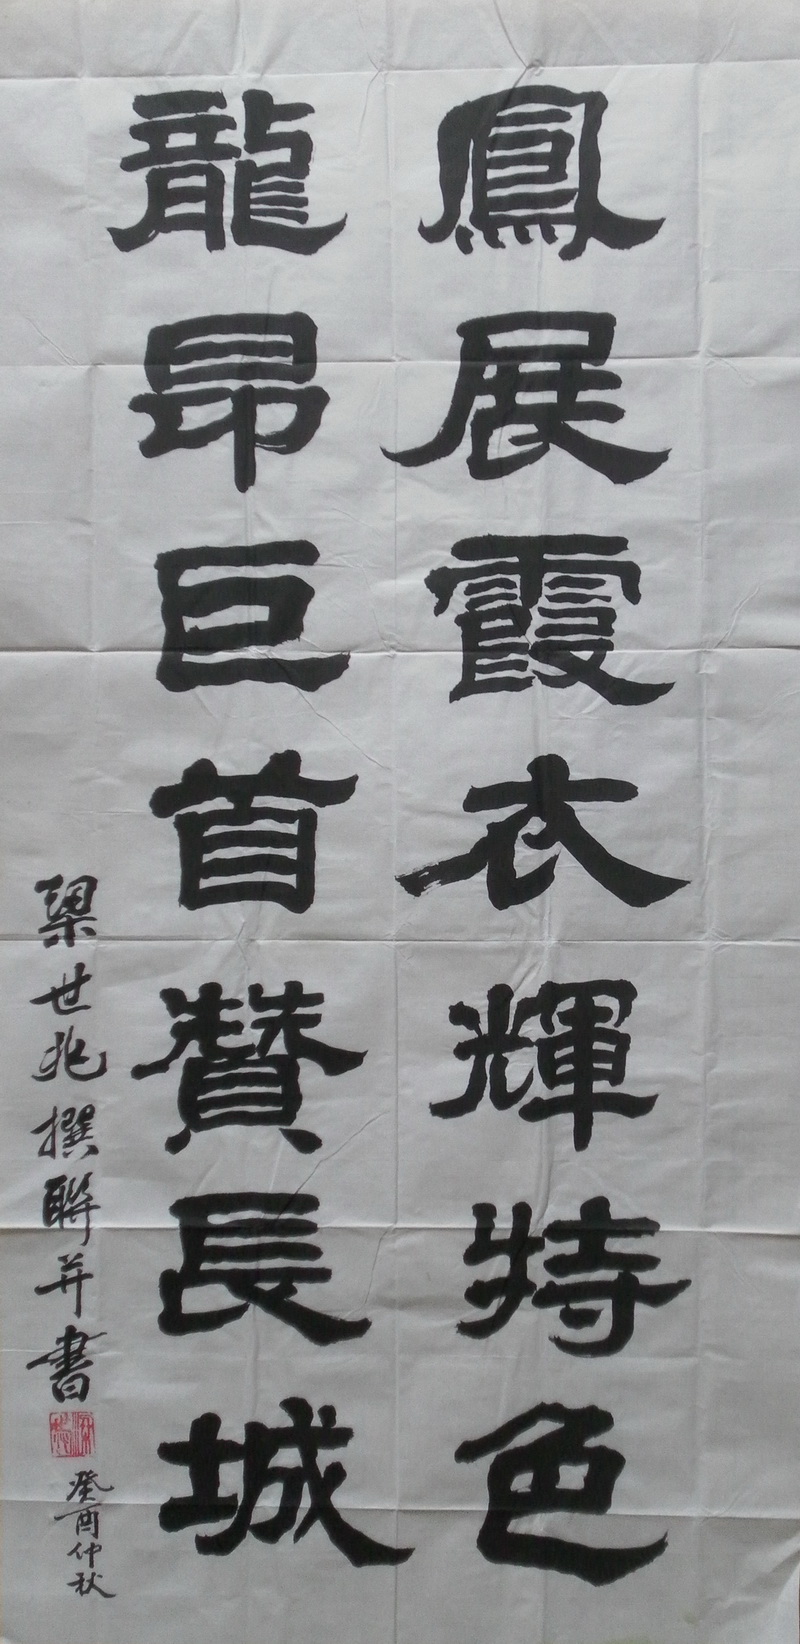 鳳展霞衣輝特色
龍昂巨首贊長城
梁世兆撰聯并書
癸酉仲秋